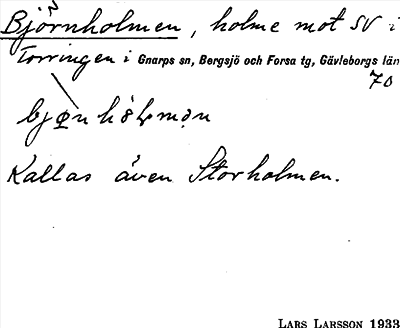 Björnholmen, holme mot SV i
Torringen i Gnarps sn, Bergsjö och Forsa tg, Gävleborgs län
70
Kallas även Storholmen.
LARS LARSSON 1933